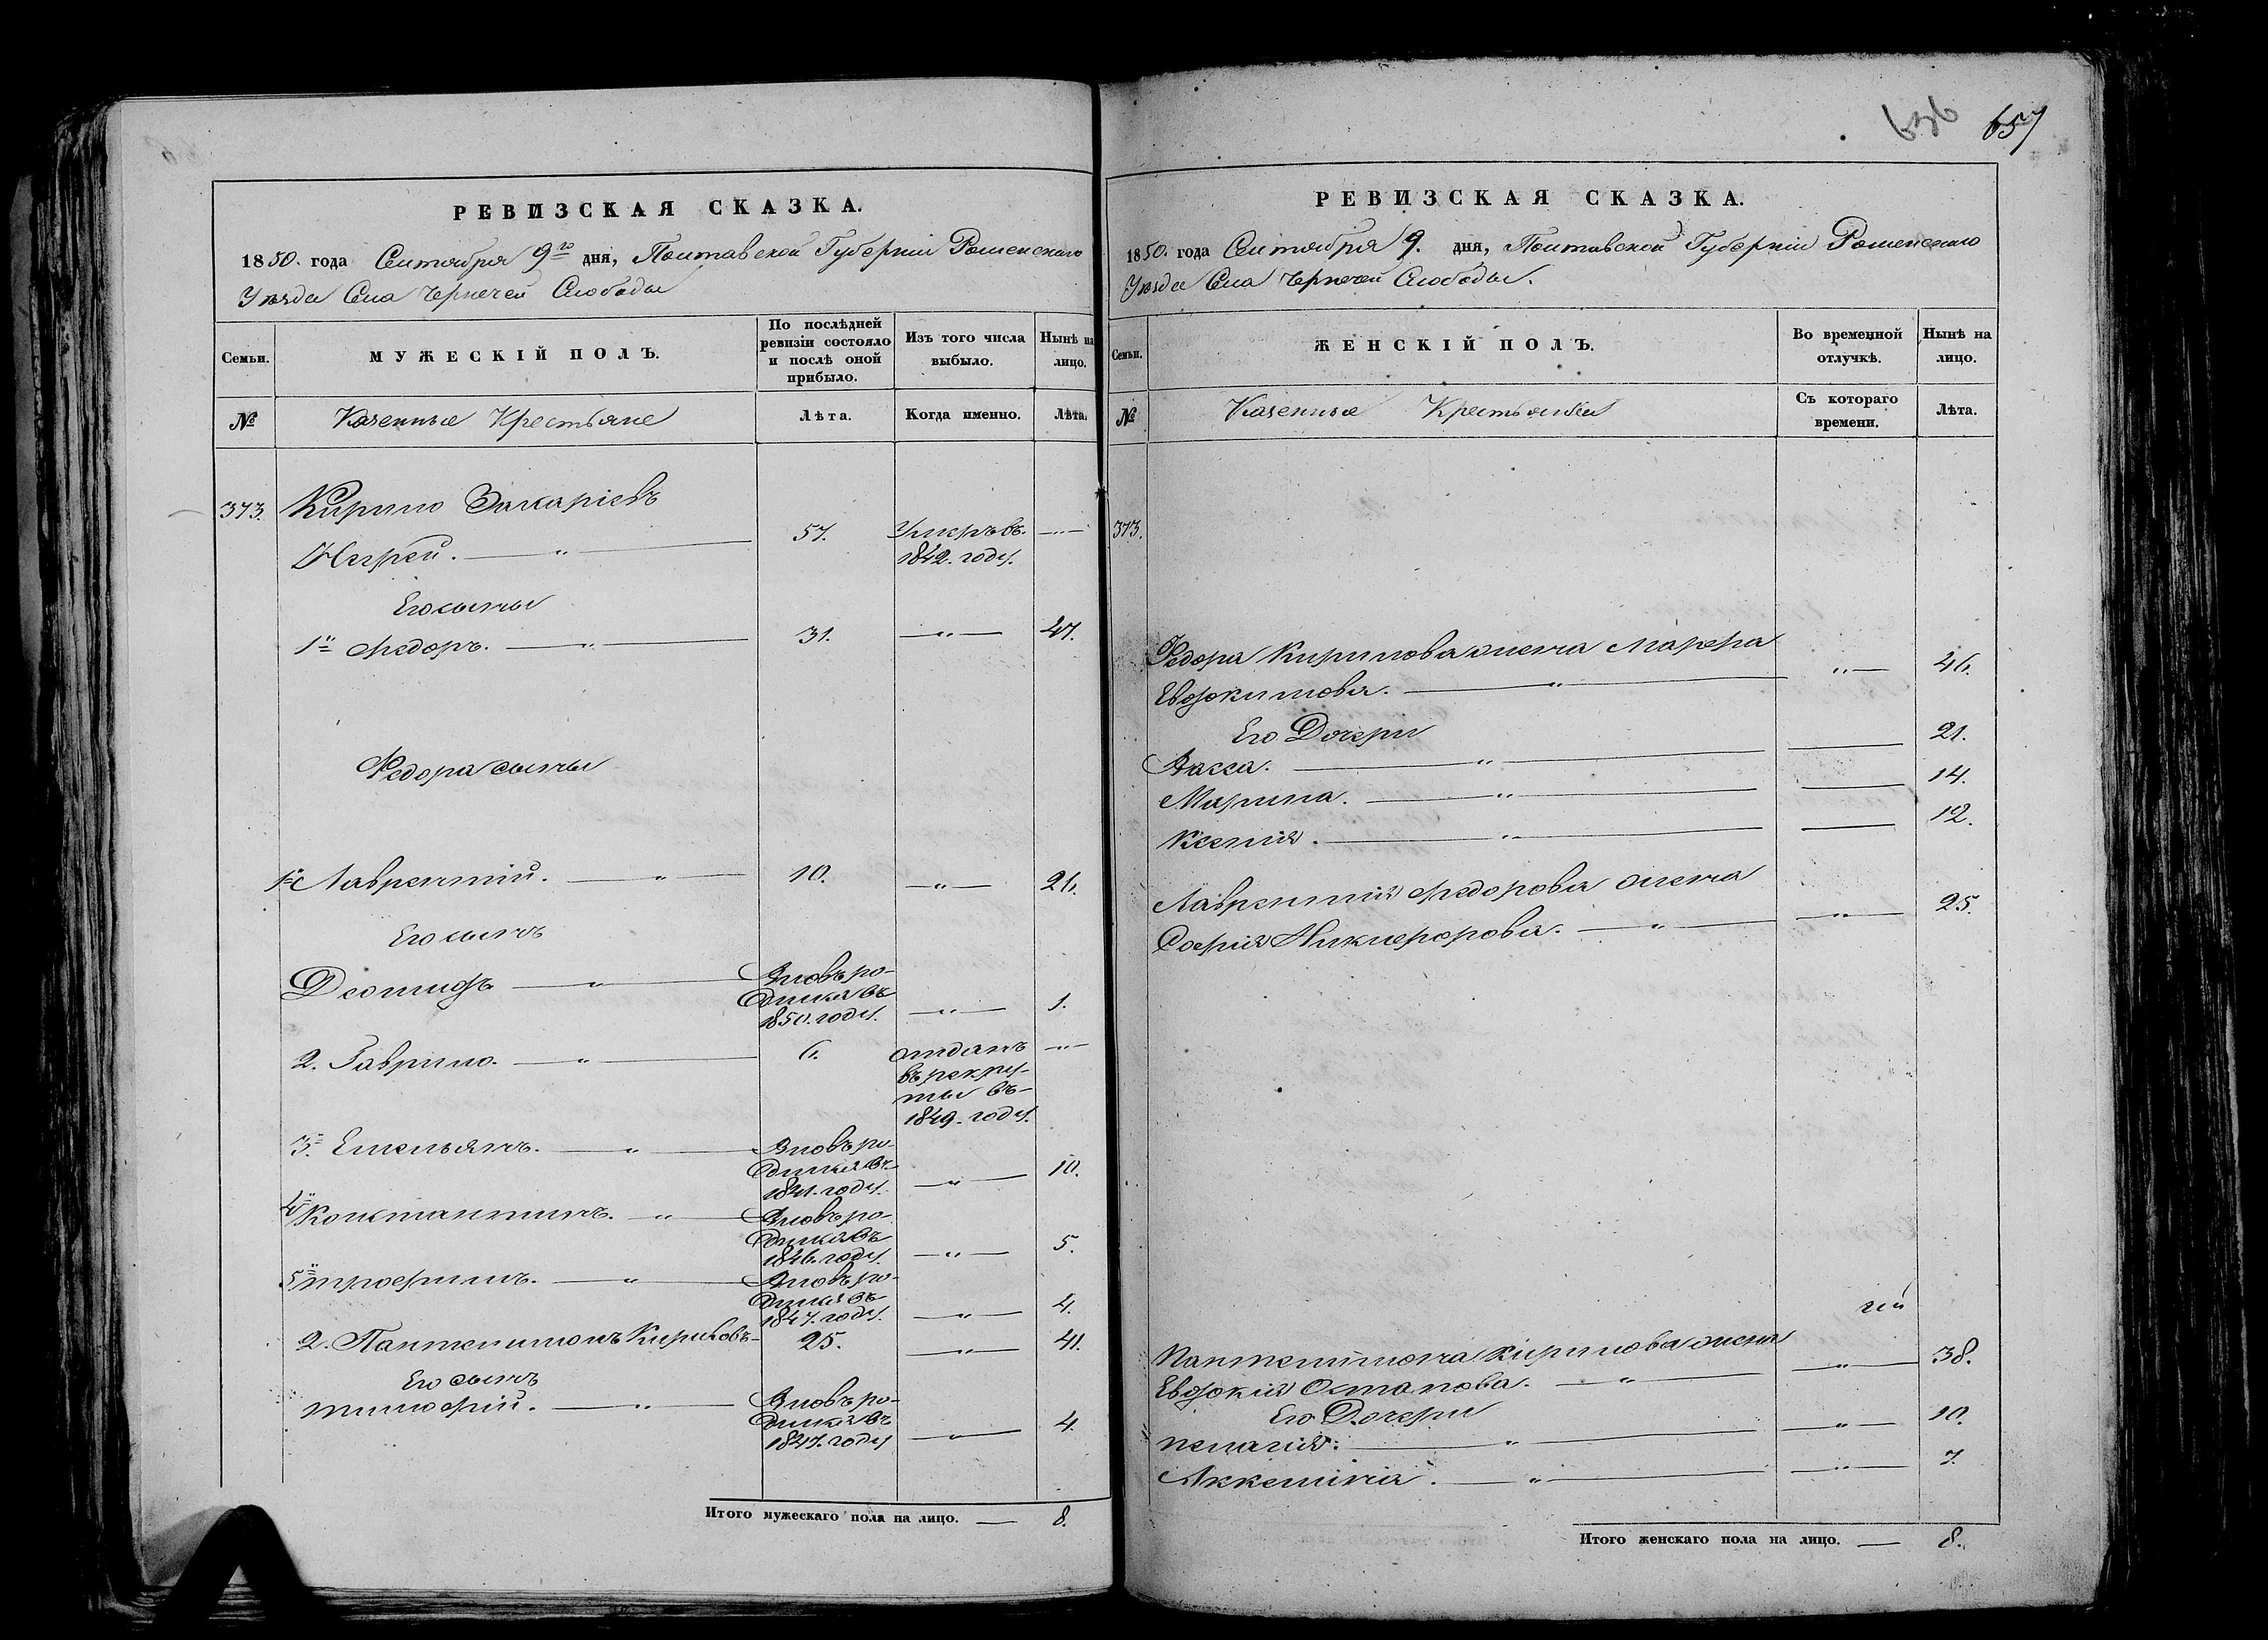 636 657
РЕВИЗСКАЯ СКАЗКА.
1850. года Сентября 9го дня, Полтавской Губерніи Роменскаго
Уѣзда Села Чернечей Слободы
Семьи.
МУЖЕСКІЙ ПОЛЪ.
По послѣдней
ревизіи состояло
и послѣ оной
прибыло.
Изъ того числа
выбыло.
Нынѣ на
лицо.
№
Казенные Крестьяне
Лѣта.
Когда именно.
Лѣта.
373. Кирило Захаріевъ
57. Умеръ въ
1842. году.
Его сыны
1й Федоръ. 31. 47.
Федора сыны
1й Лаврентій. 10. 26.
Его сынъ
Вновь ро-
дился въ
1850. году. 1.
2. Гаврило. 6. отданъ
въ рекру-
ты въ
1849. году.
3й Емельянъ. Вновь ро-
дился въ
1841. году. 10.
4й Константинъ. Вновь ро-
дился въ
1846. году. 5.
5й Трофимъ. Вновь ро-
дился въ
1847. году. 4.
2. Пантелимонъ Кириловъ 25. 41.
Его сынъ
Тимофій. Вновь ро-
дился въ
1847. году 4.
Итого мужескаго пола на лицо. 8.
РЕВИЗСКАЯ СКАЗКА.
1850. года Сентября 9. дня, Полтавской Губерніи Роменскаго
Уѣзда Села Чернечей Слободы.
Семьи.
ЖЕНСКІЙ ПОЛЪ.
Во временной
отлучкѣ.
Нынѣ на
лицо.
№
Казенные Крестьянки
Съ котораго
времени.
Лѣта.
373.
Федора Кирилова жена Марфа
Евдокимова. 46.
Его Дочери
Васса. 21.
Марина. 14.
Ксенія. 12.
Лаврентія Федорова жена
Софія Никифорова. 25.
Пантелимона Кирилова жена
Евдокія Остапова. 38.
Его Дочери
Пелагія. 10.
7.
Итого женскаго пола на лицо. 8.